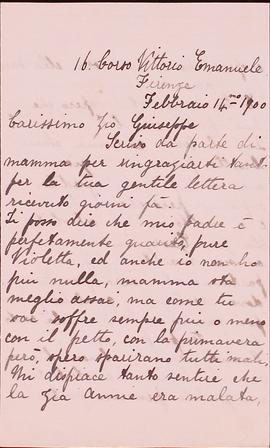 16. Corso Vittorio Emanuele
Firenze
Febbraio 14mo 1900
Carissimo Zio Giuseppe
Scrivo da parte di
mamma per ringraziarti tanto
per la tua gentile lettera
ricevuto giorni fà
Ti posso dire che mio padre è
perfetamente guarito, pure
Violetta, ed anche io non ho
piu nulla, mamma sta
meglio assai, ma come tu
sai soffre sempre piu o meno
con il petto, con la primavera
però, spero sparirano tutti mali,
Mi dispiace tanto sentire che
la zia Annie era malata,